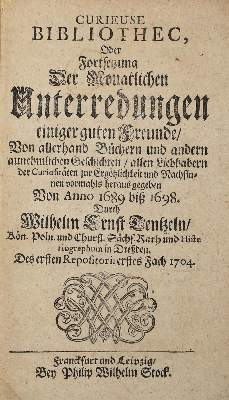 CURIEUSE
BIBLIOTHEC,
Oder
Fortsetzung
Der Monatlichen
Unterredungen
einiger guten Freunde/
Von allerhand Büchern und andern
annemlichen Geschichten/ allen Liebhabern
der Curiositäten zur Ergötzlichkeit und Nachsin-
nen vormahls heraus gegeben
Von Anno 1689 biß 1698.
Durch
Wilhelm Ernst Tentzeln/
Kön. Poln. und Churfl. Sächs. Rath und Histo-
riographum in Dreßden.
Des ersten Repositorii erstes Fach 1704.
Franckfurt und Leipzig/
Bey Philip Wilhelm Stock.